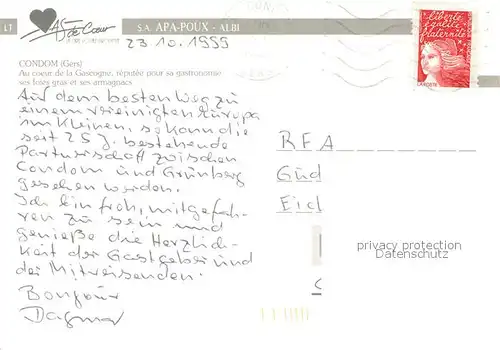 LT
As de Cœur
S.A. APA-POUX - ALBI
23.10.1999
liberté
égalité
fraternité
LA POSTE
CONDOM (Gers)
Au coeur de la Gascogne, réputée pour sa gastronomie
ses foies gras et ses armagnacs
Auf dem besten Weg zu
einem vereinigten Europa
im Kleinen, so kann die
seit 25 J. bestehende
Partnerschaft zwischen
Condom und Grünberg
gesehen werden.
Ich bin froh, mitgefah-
ren zu sein und
genieße die Herzlich-
keit der Gastgeber und
der Mitreisenden.
Bonjour
Dagmar
RFA
Güd
Eich
privacy protection
Datenschutz